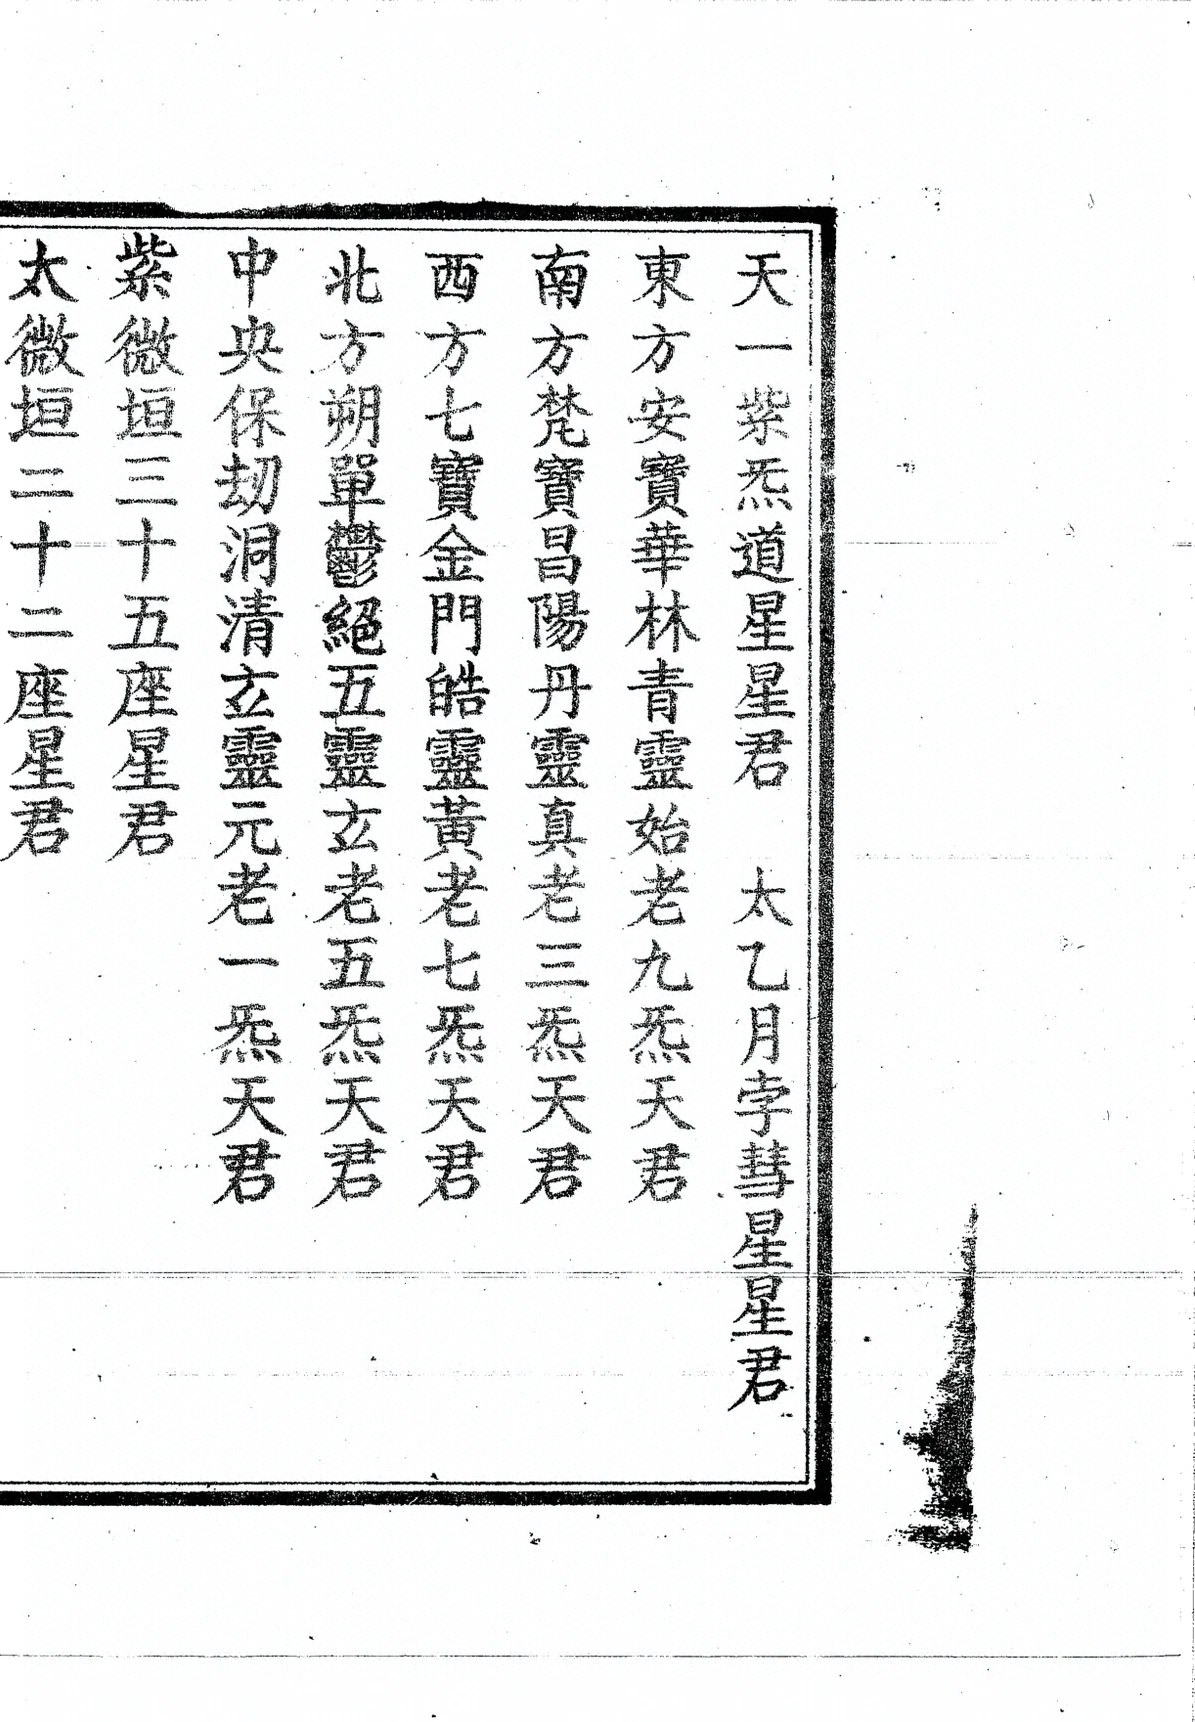 天一紫炁道星星君　太乙月孛彗星星君
東方安寶華林青靈始老九炁天君
南方梵寶昌陽丹靈真老三炁天君
西方七寶金門皓靈黃老七炁天君
北方朔單鬱絕五靈玄老五炁天君
中央保劫洞清玄靈元老一炁天君
紫微垣三十五座星君
太微垣二十二座星君